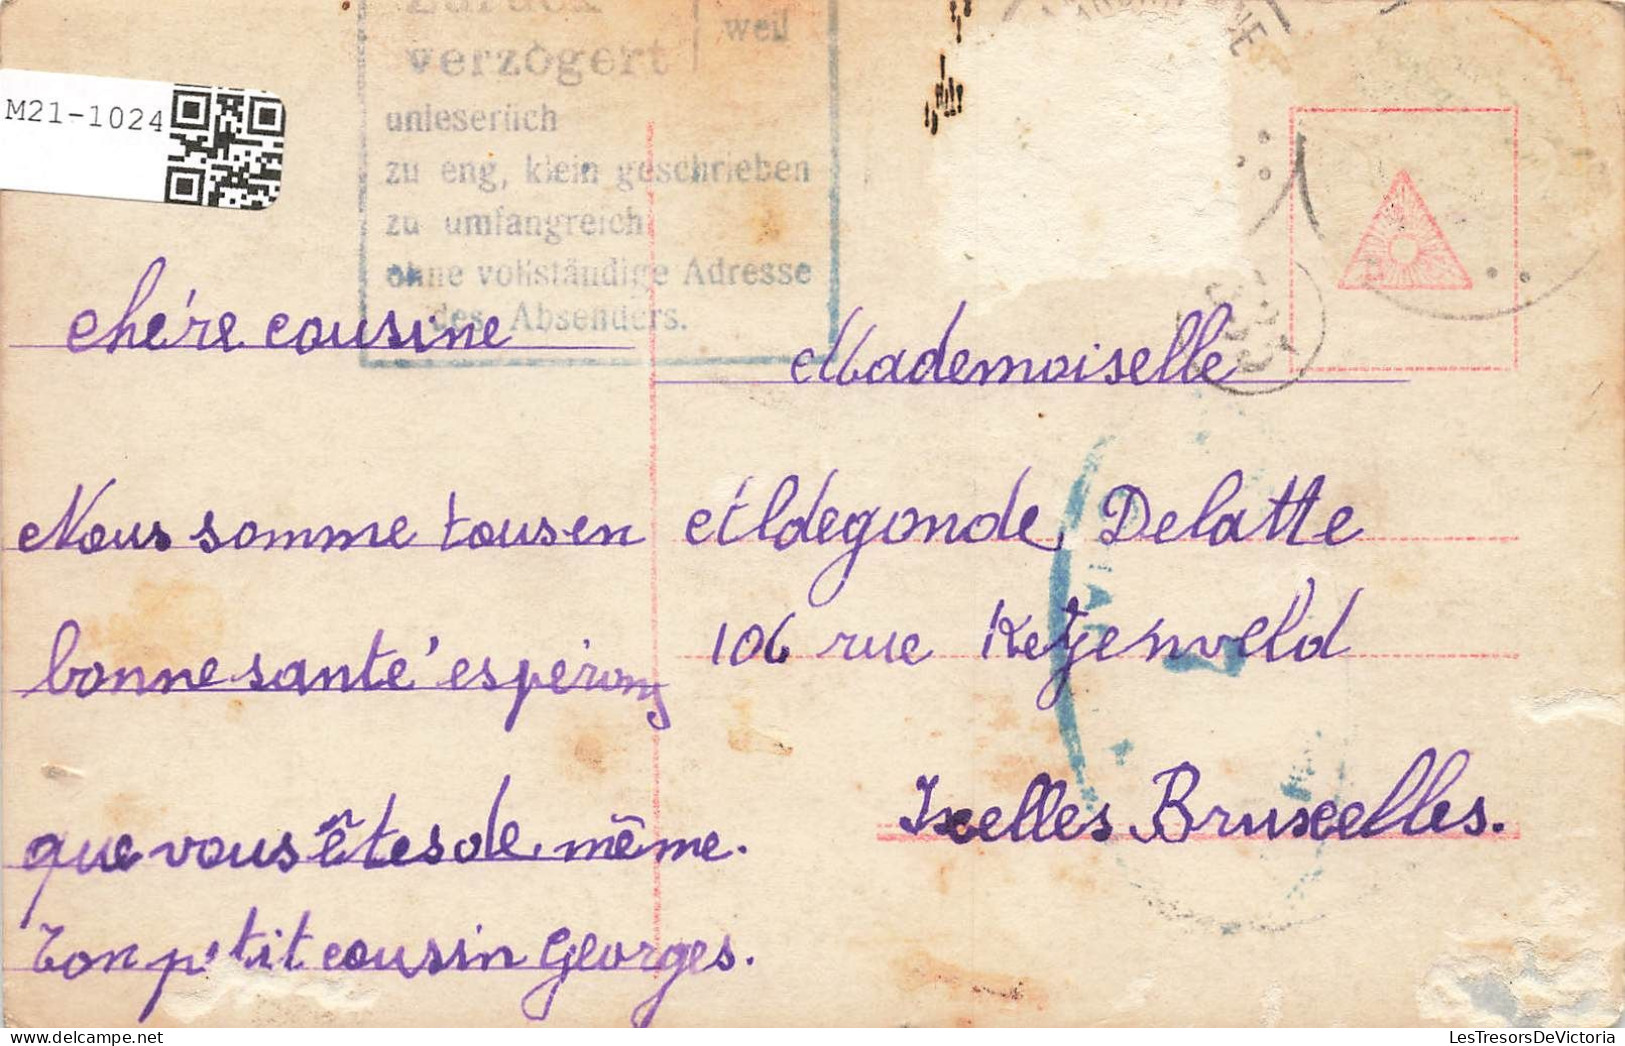 Zurück
verzögert
weil
unleserlich
zu eng, klein geschrieben
zu umfangreich
ohne vollständige Adresse
des Absenders.
M21-1024
chére cousine
Nous somme tous en
bonne santé espérons
que vous êtes de même.
Ton p'tit cousin Georges.
Mademoiselle
Aldegonde Delatte
106 rue Ketjenveld
Ixelles Bruxelles.
LesTresorsDeVictoria